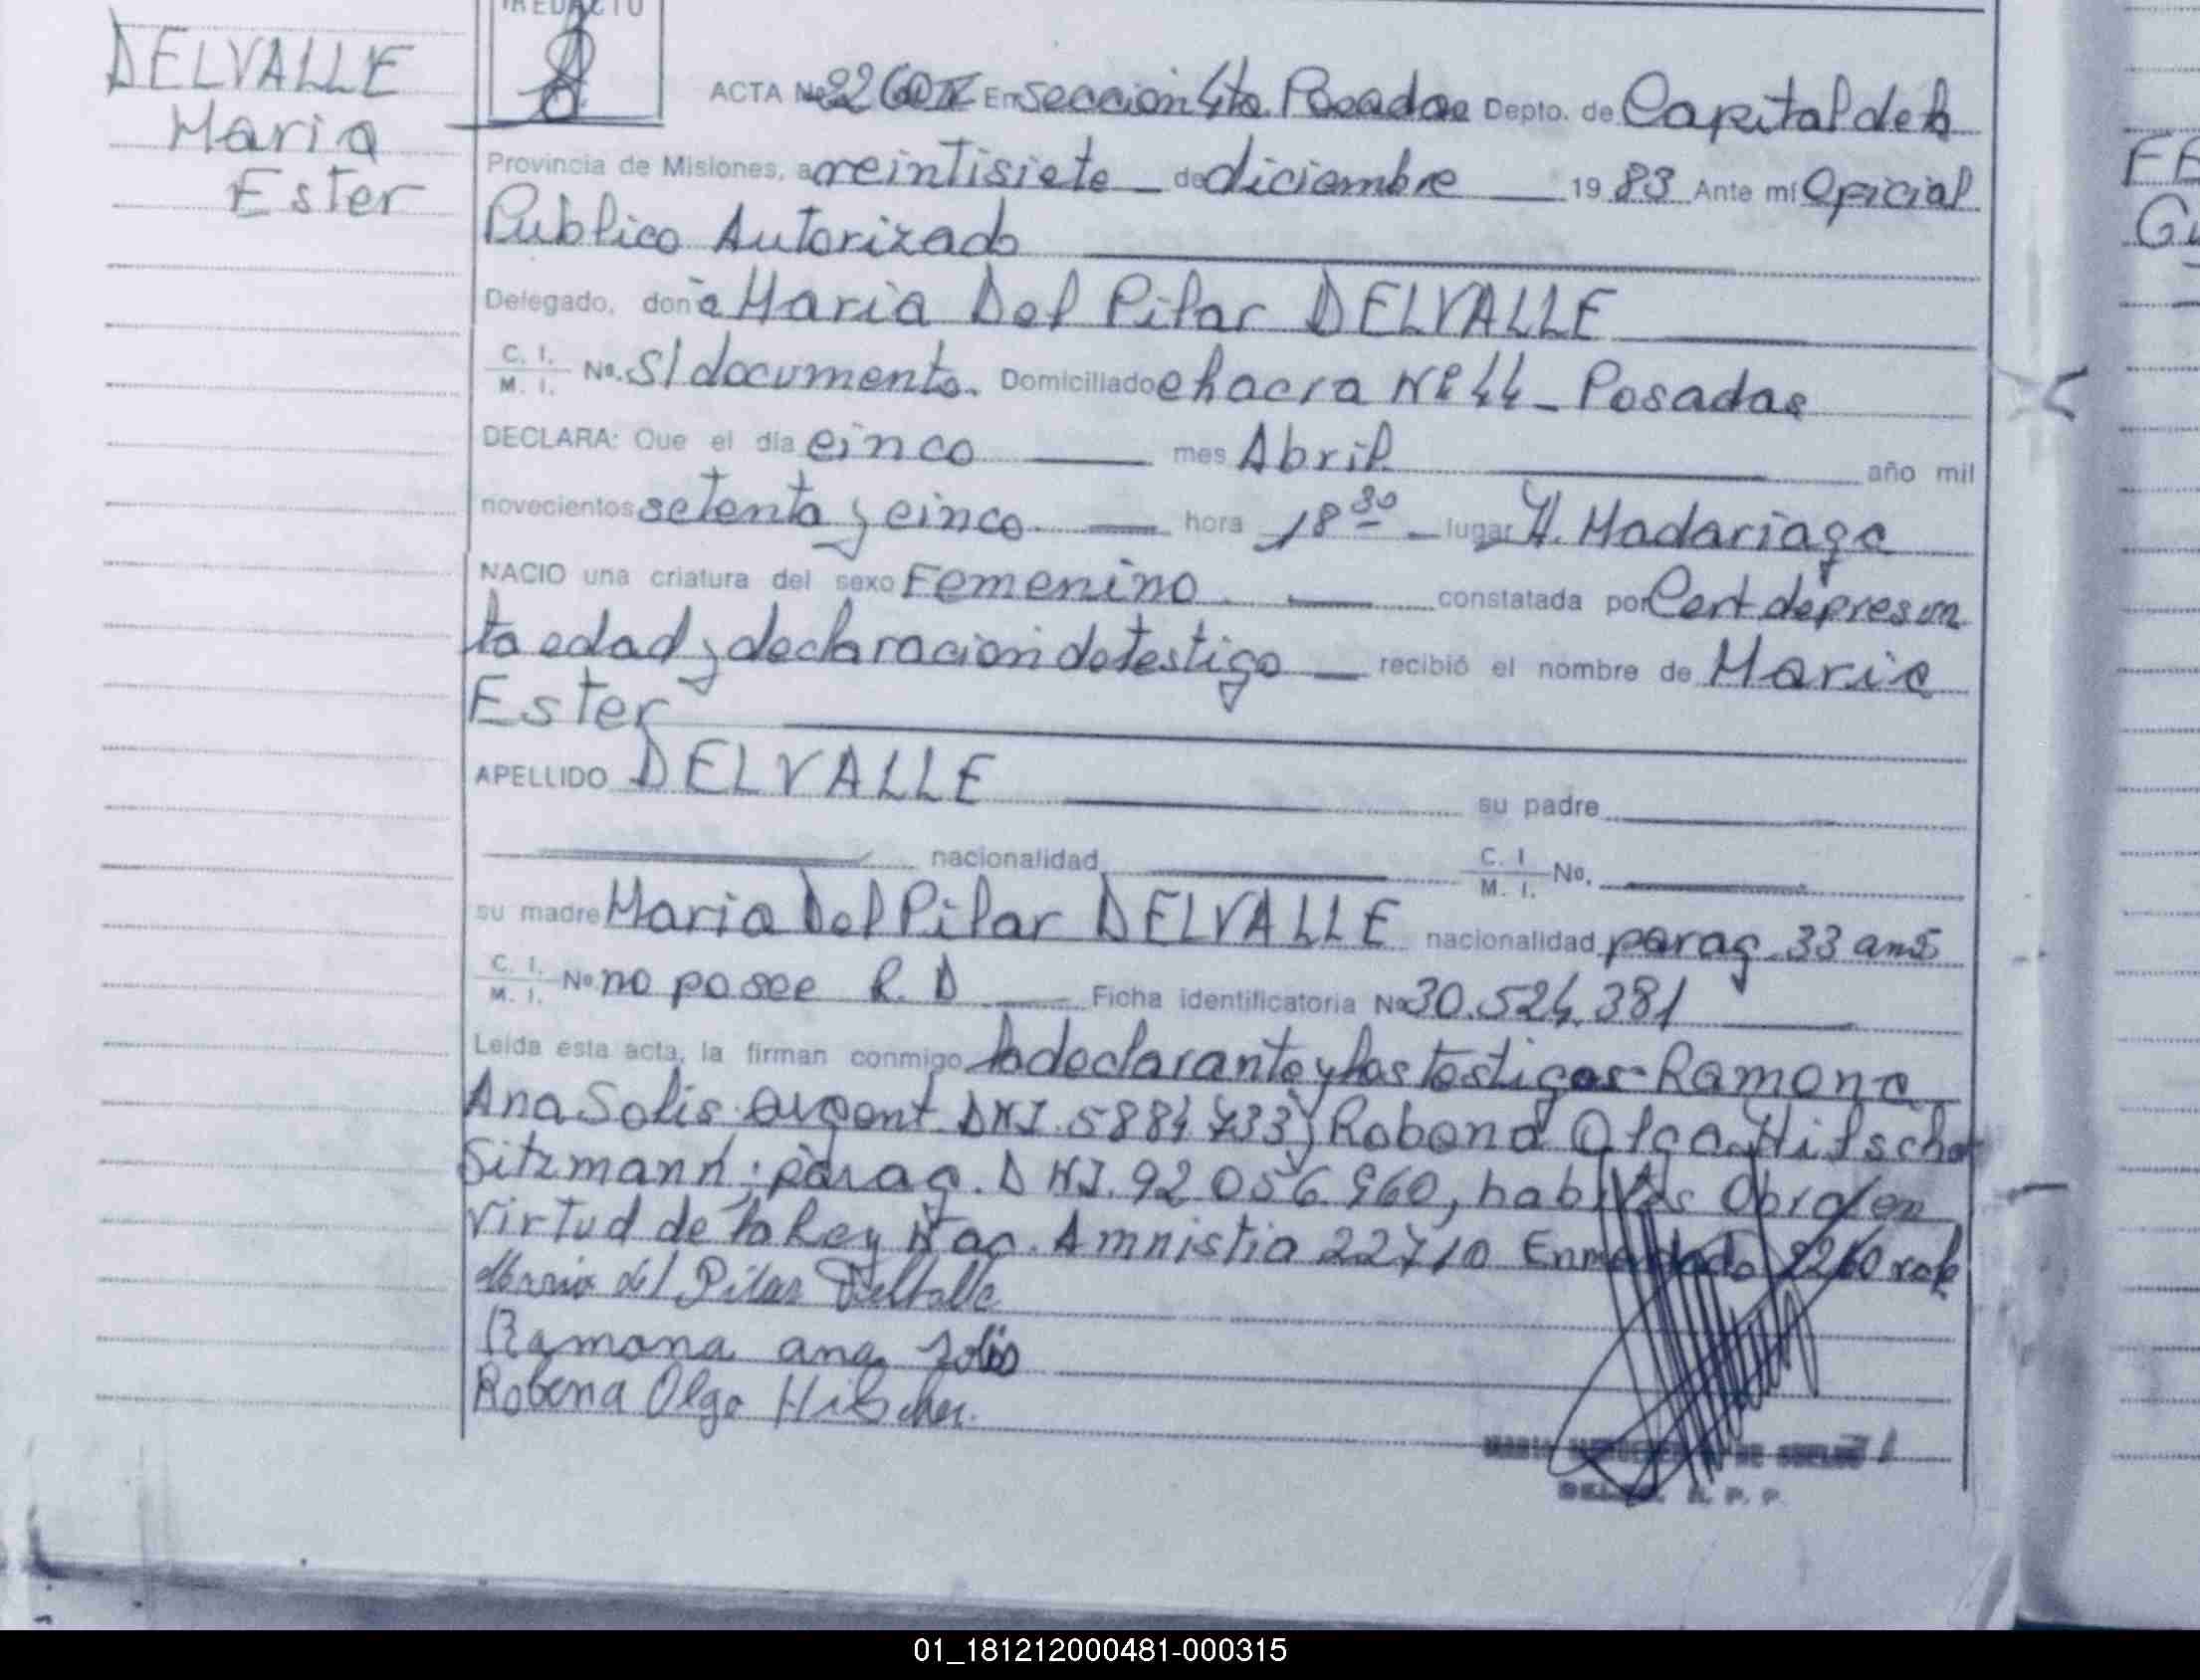 DELVALLE
Maria
Ester
ACTA Nº 2260 IV En seccion 4ta. Posadas Depto. de Capital de la
Provincia de Misiones, a veintisiete de diciembre 19 83 Ante mí Oficial
Publico Autorizado
Delegado, doña Maria Del Pilar DELVALLE
C. I.
M. I. Nº. S/documento. Domiciliado chacra Nº 44 - Posadas
DECLARA: Que el día cinco mes Abril año mil
novecientos setenta y cinco hora 18 30 lugar H. Madariaga
NACIO una criatura del sexo Femenino constatada por Cert de presun
ta edad y declaracion de testigo recibió el nombre de Maria
Ester
APELLIDO DELVALLE su padre
nacionalidad C. I.
M. I. No.
su madre Maria Del Pilar DELVALLE nacionalidad parag. 33 años
C. I.
M. I. Nº no posee R. D Ficha identificatoria Nº 30.524.381
Leída esta acta, la firman conmigo la declarante y las testigos Ramona
Ana Solis argent DNI. 5884733 y Robona Olga Hilscher
Sitzmann; parag. DNI. 92 056 960, habites Obra en
virtud de la Ley Nac. Amnistia 22710 Enmendado 2260 vale
Maria del Pilar Delvalle
Ramona ana Solis
Robena Olga Hilscher.
MARIA DE
R. P. P.
FE